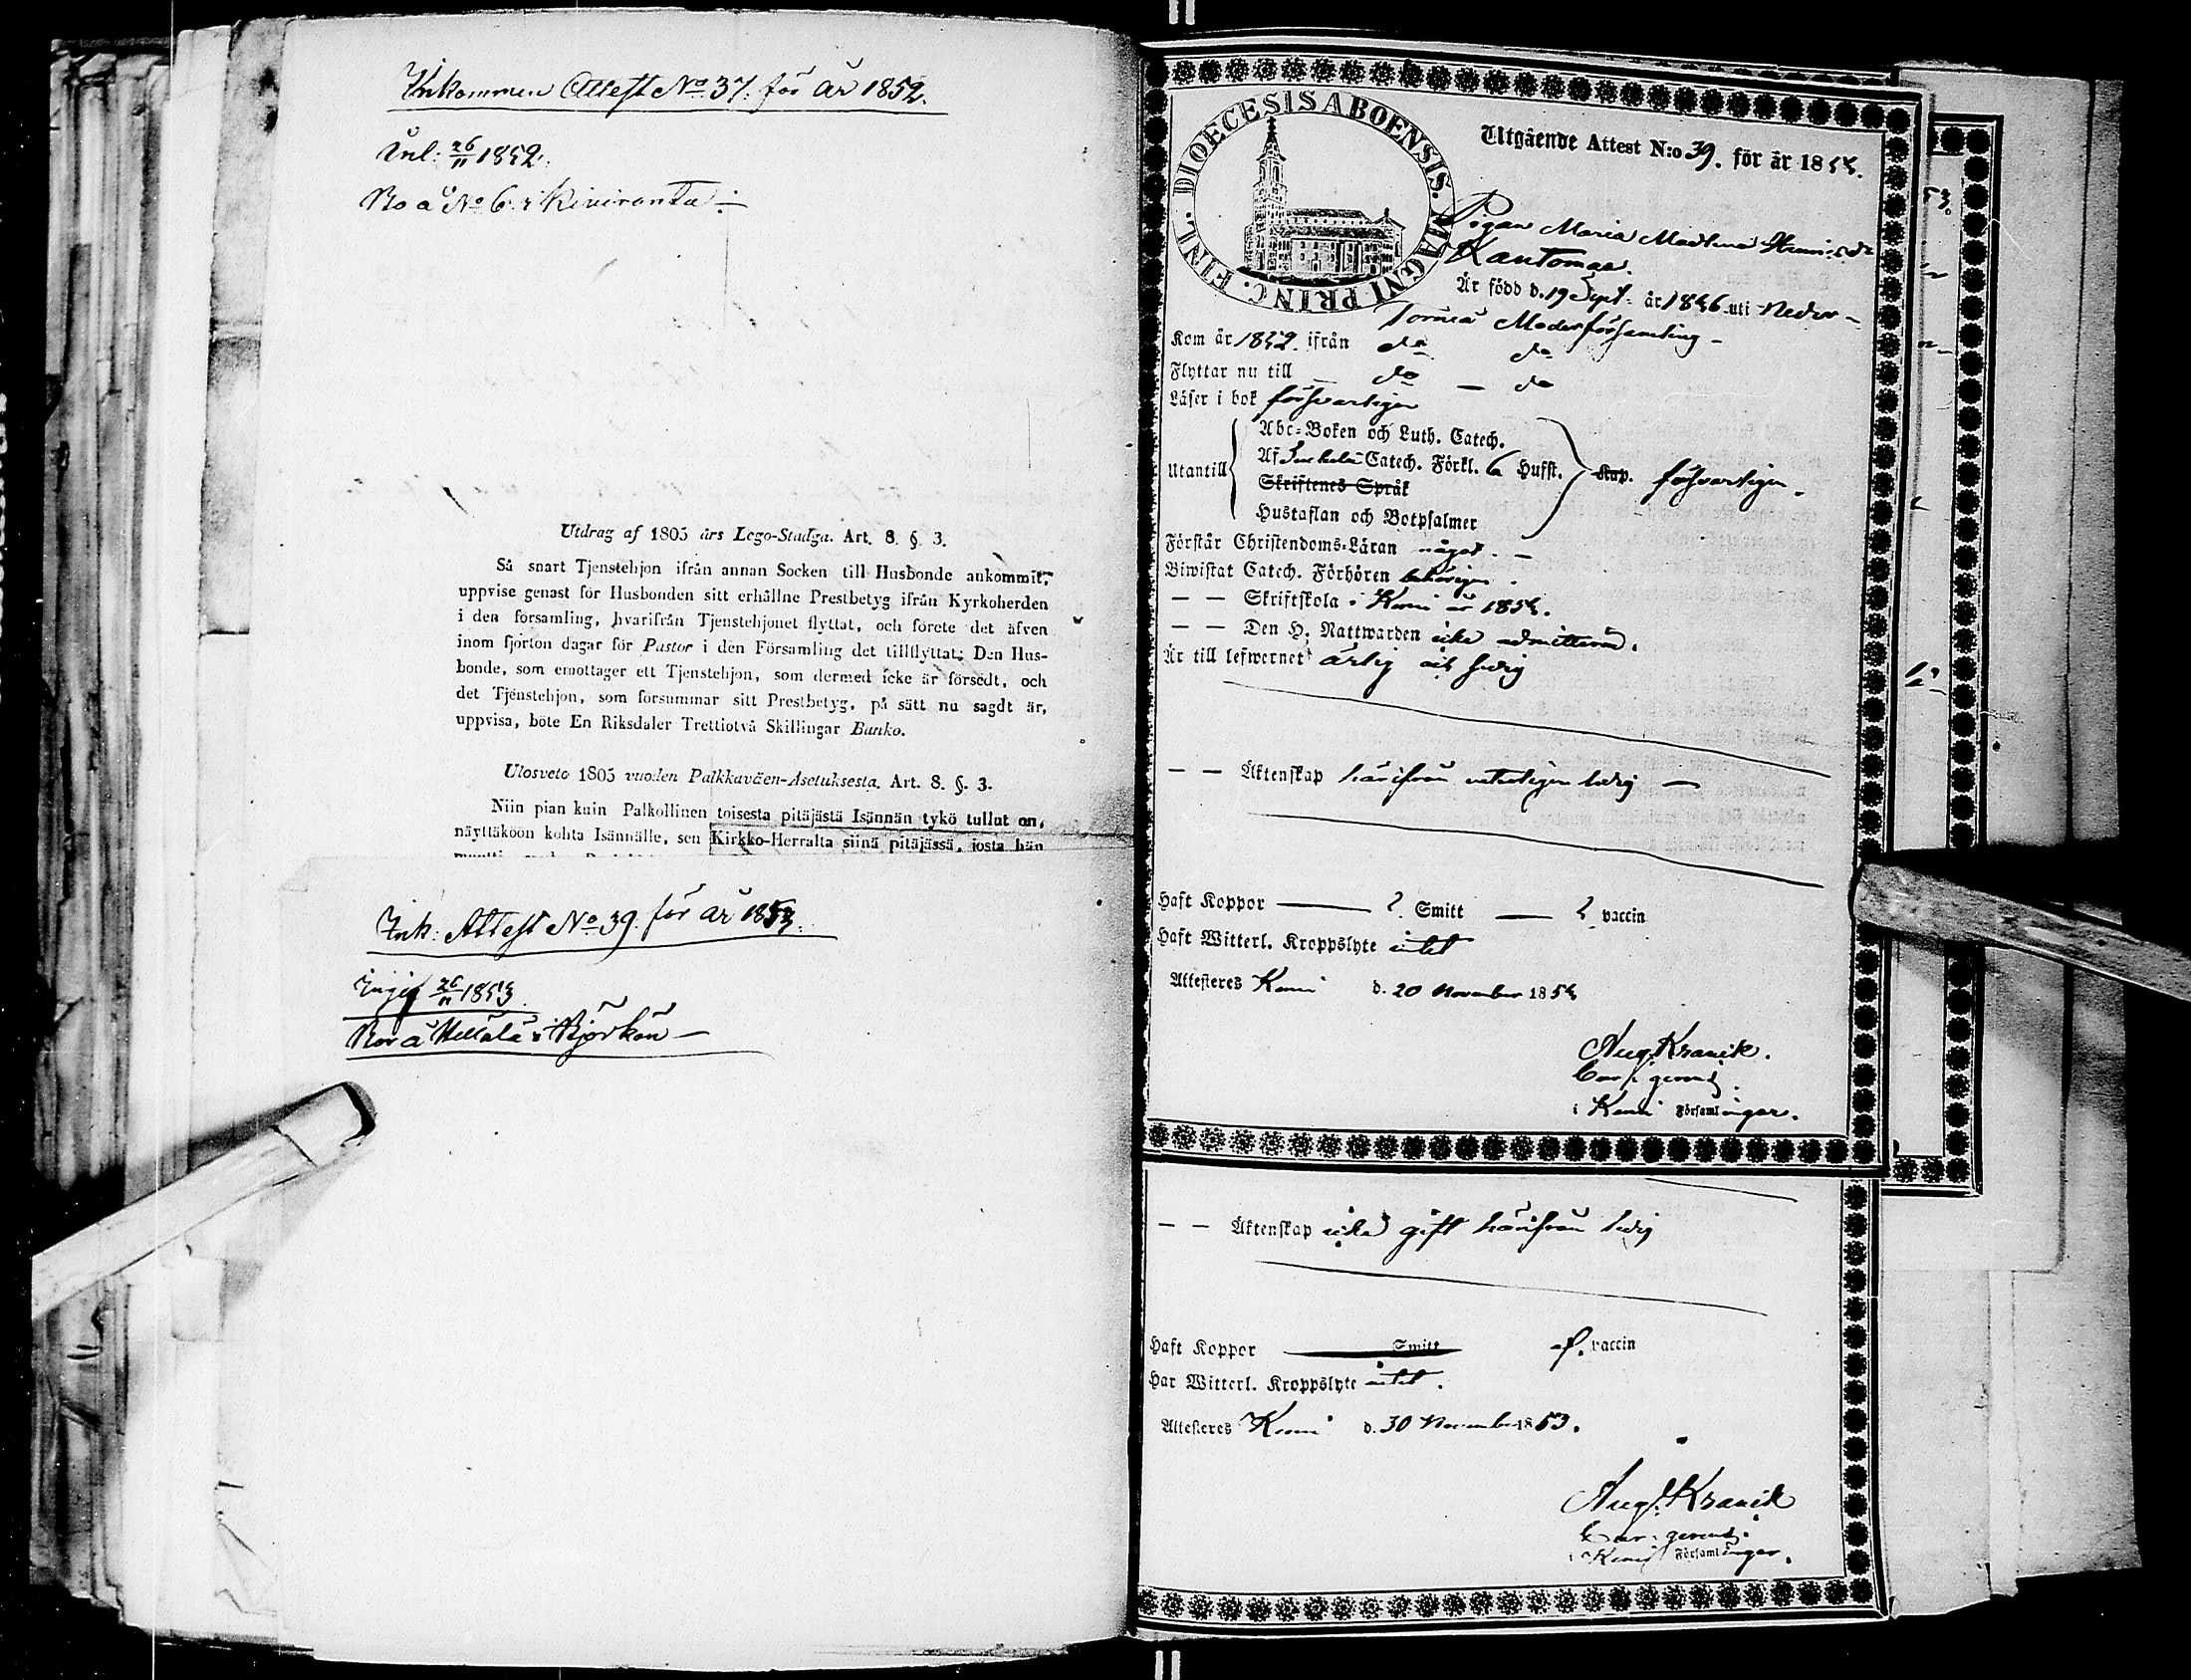 Inkommen Attest No 37. för år 1852.
Inl: 26/11 1852.
Bo å No 6 i Kiviranta
Utdrag af 1805 års Lego-Stadga. Art. 8. §. 3.
Så snart Tjenstehjon ifrån annan Socken till Husbonde ankommit,
uppvise genast för Husbonden sitt erhållne Prestbetyg ifrån Kyrkoherden
i den församling, hvarifrån Tjenstehjonet flyttat, och förete det äfven
inom fjorton dagar för Pastor i den Församling det tillflyttat; Den Hus-
bonde, som emottager ett Tjenstehjon, som dermed icke är försedt, och
det Tjenstehjon, som försummar sitt Prestbetyg, på sätt nu sagdt är,
uppvisa, böte En Riksdaler Trettiotvå Skillingar Banko.
Ulosveto 1805 vuoden Palkkaväen-Asetuksesta. Art. 8. §. 3.
Niin pian kuin Palkollinen toisesta pitäjästä Isännän tykö tullut on,
näyttäköön kohta Isännälle, sen Kirkko-Herralta siinä pitäjässä, josta hän
Ink: Attest No 39. för år 1853.
26/11 1853
Bor å i Björkön
DIOECESIS ABOENSIS. MAGNI PRINC. FINL.
Utgående Attest N:o 39. för år 185
Pigan Maria
Är född d. 19 Sept. år 1836 uti Neder-
Torneå Moderförsamling
Kom år 1852. ifrån do do
Flyttar nu till do do
Läser i bok försvarligen
Utantill
Abc-Boken och Luth. Catech.
Af Catech. Förkl. 6 Hufst.
Skriftenes Språk
Hustaflan och Botpsalmer
Kap. försvarligen.
Förstår Christendoms-Läran något.
Biwistat Catech. Förhören behörigen.
— — Skriftskola i Kemi år 185
— — Den H. Nattwarden icke admitterad.
Är till lefwernet ärlig och sedig
— — Äktenskap härifrån veterligen ledig
Haft Koppor ? Smitt ? vaccin
Haft Witterl. Kroppslyte intet
Attesteres Kemi d. 20 November 185
Aug. Kranck.
i Kemi Församlingar.
— — Äktenskap icke gift härifrån ledig
Haft Koppor Smitt vaccin
Har Witterl. Kroppslyte intet.
Attesteres Kemi d. 30 November 1853.
Aug. Kranck
i Kemi Församlingar.